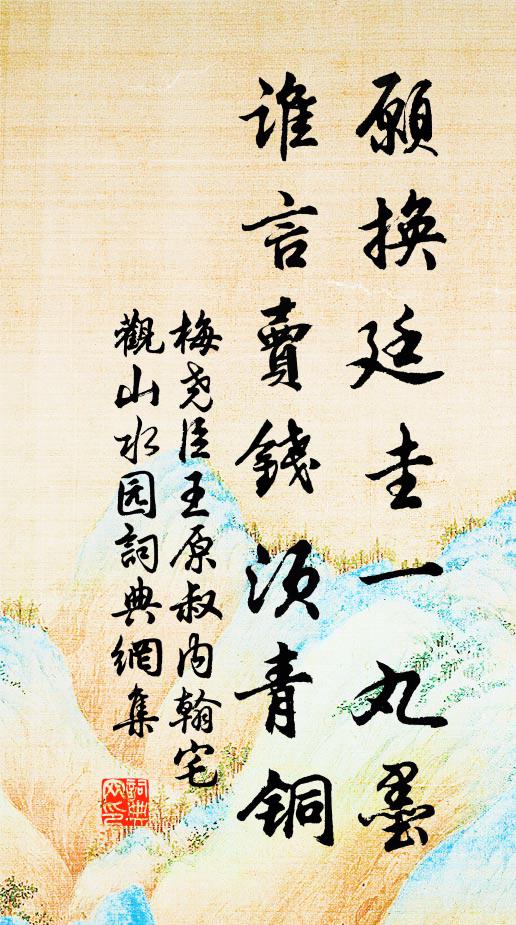 願换廷圭一丸墨
誰言賣錢須青銅
梅尧臣王原叔内翰宅
觀山水园詞典網集
詞典网印